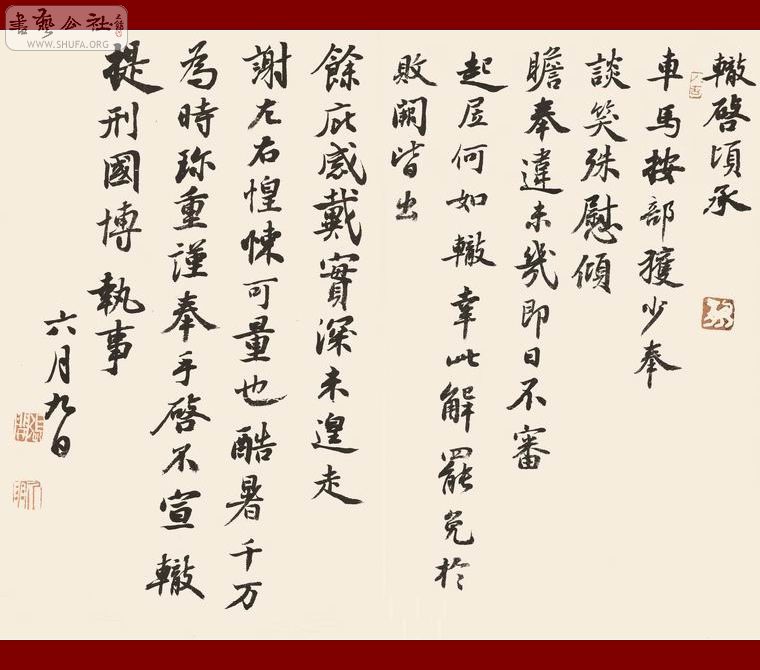 書藝公社
WWW.SHUFA.ORG
轍啓頃承
車馬按部獲少奉
談笑殊慰傾
瞻奉違未幾即日不審
起居何如轍幸此解罷免於
敗闕皆出
餘庇感戴實深未遑走
謝左右惶悚可量也酷暑千万
為時珍重謹奉手啓不宣 轍
提刑國博執事
六月九日